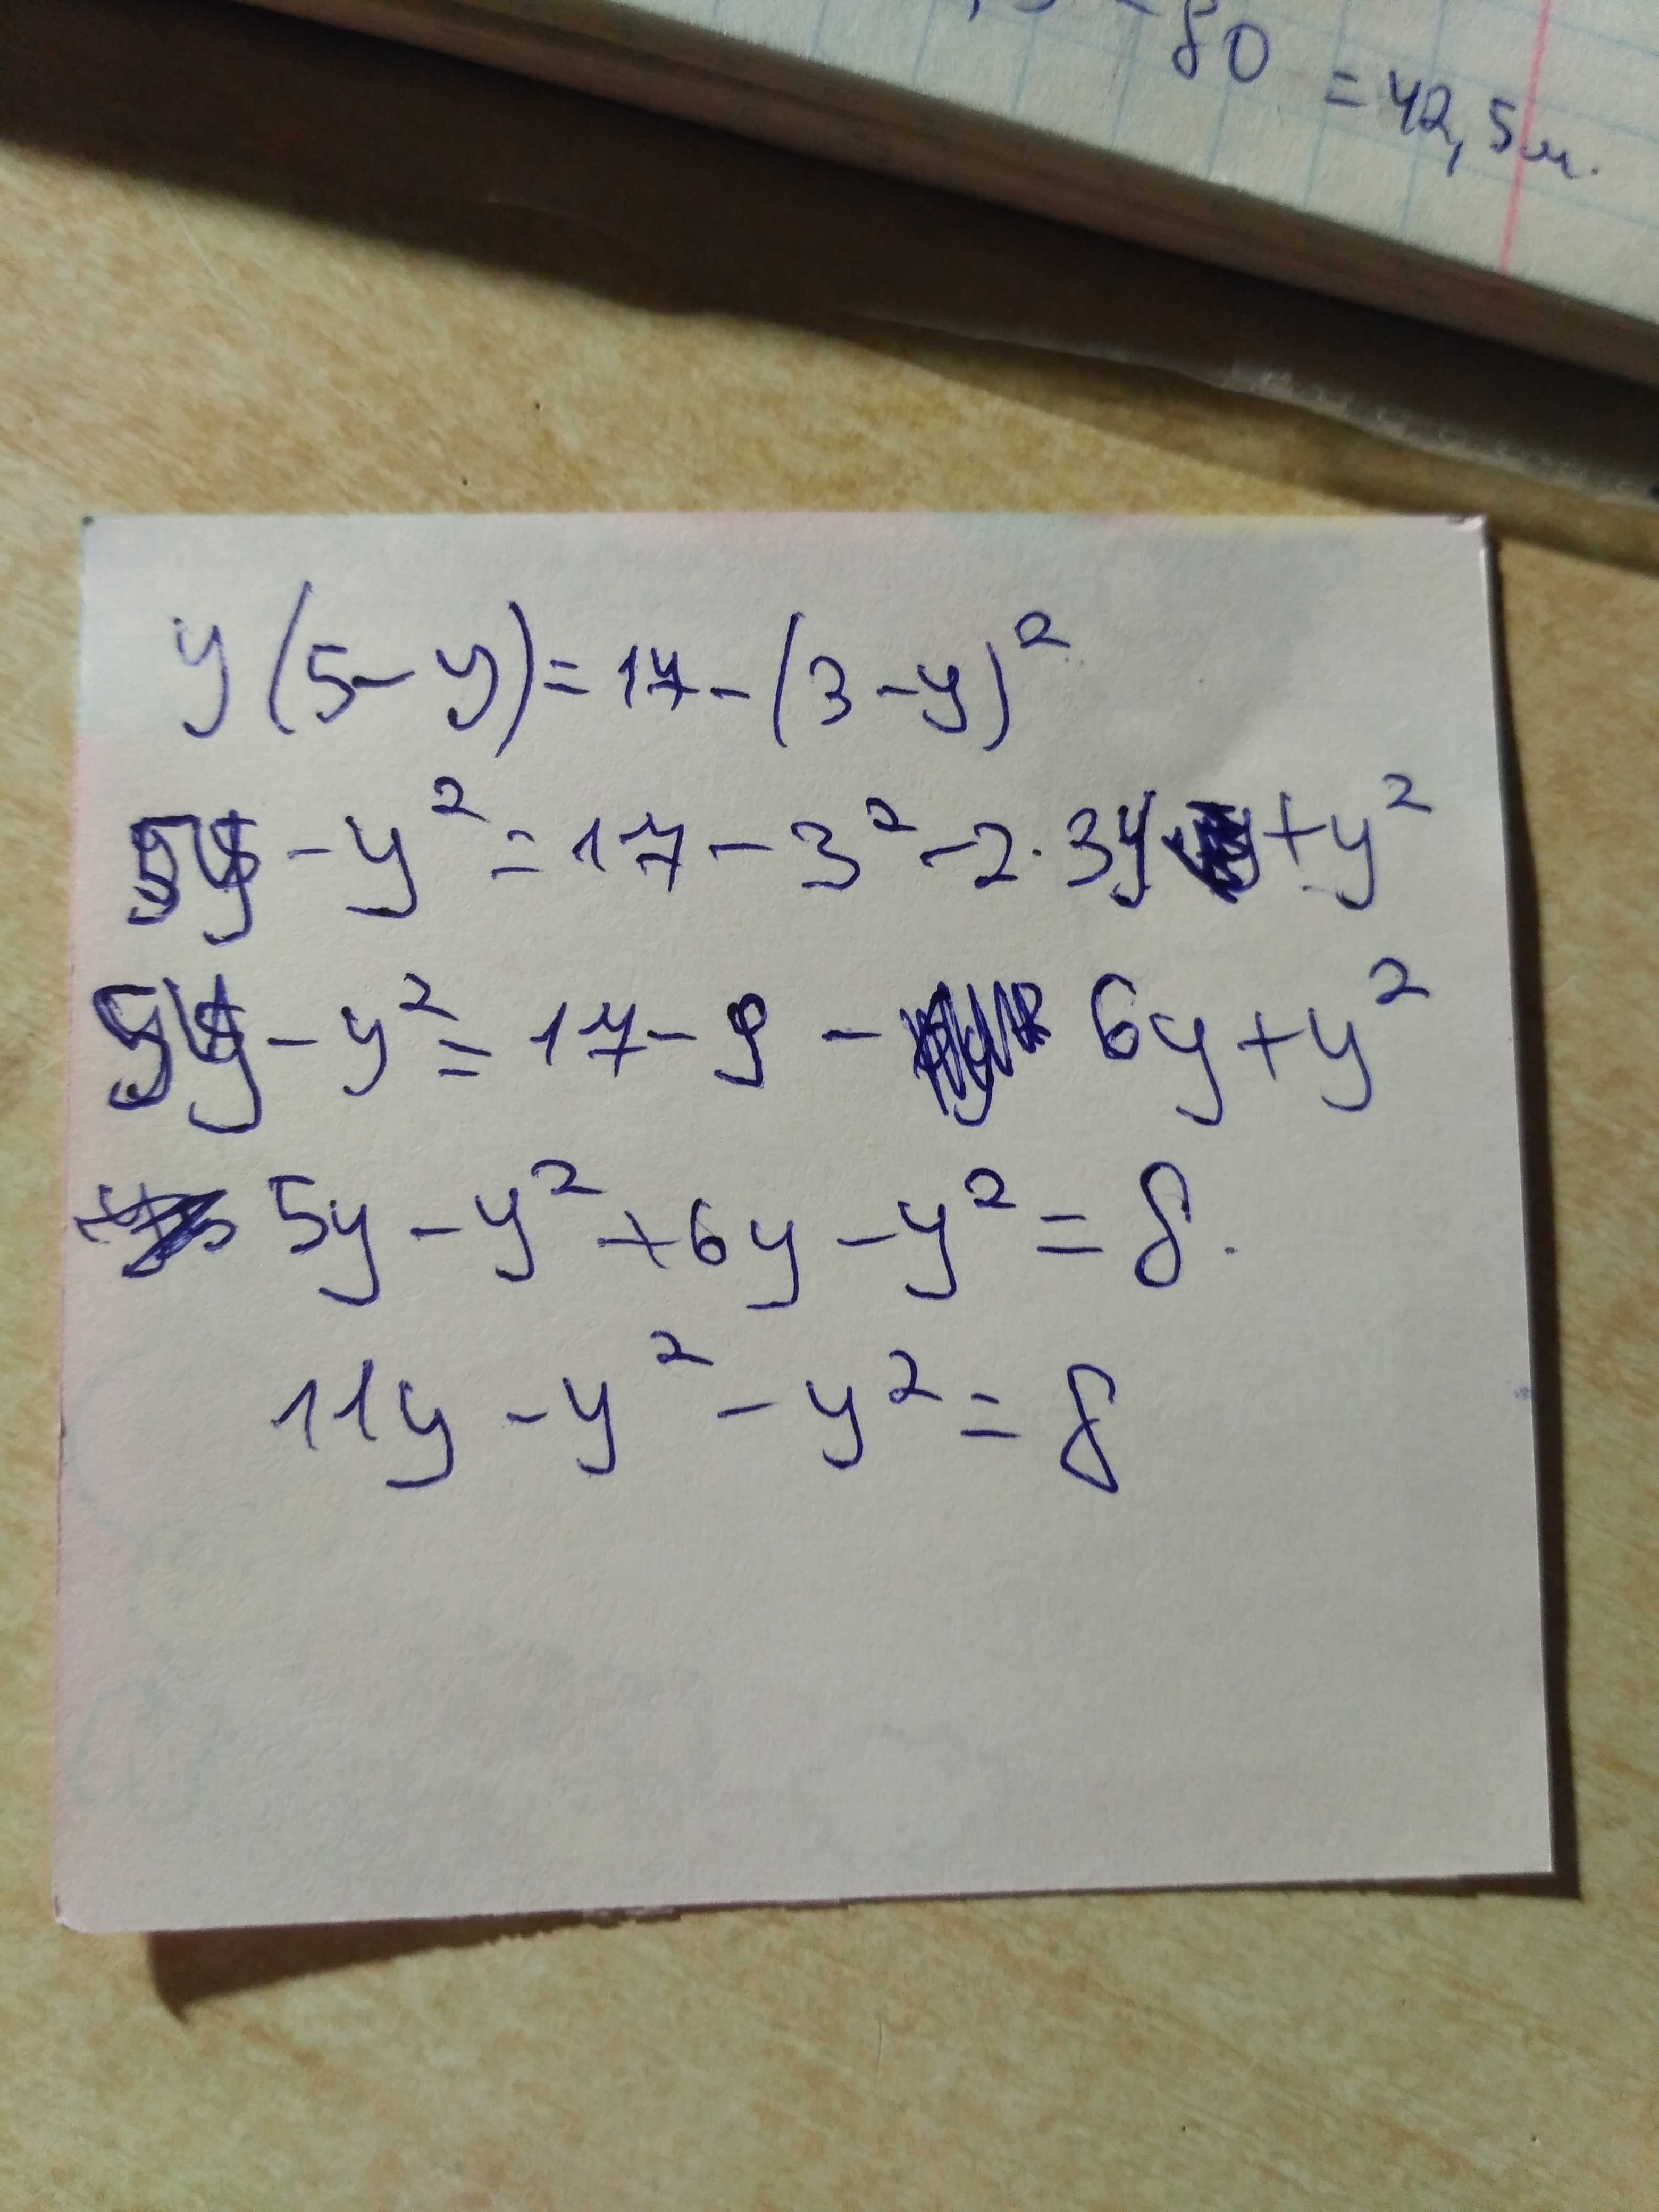 80 = 42,5м.
y(5-y)=17-(3-y)²
5y-y²=17-3²-2·3y+y²
5y-y²=17-9-6y+y²
5y-y²+6y-y²=8.
11y-y²-y²=8